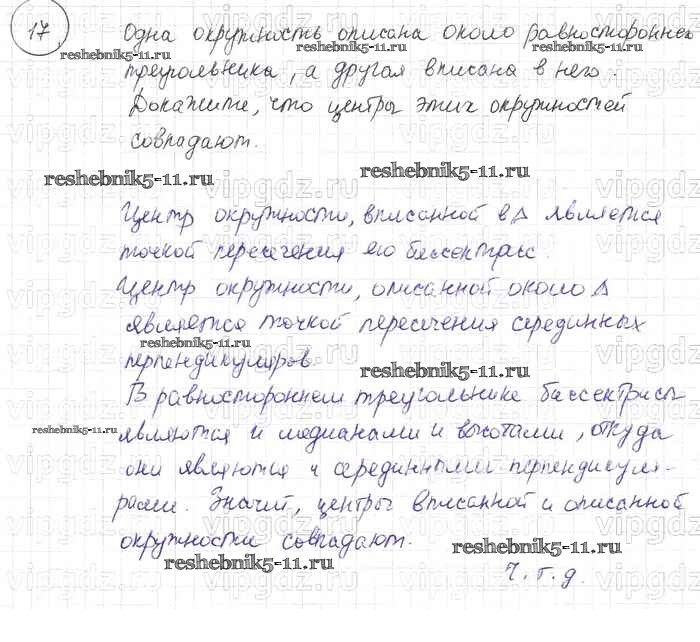 17. Одна окружность описана около равностороннего
reshebnik5-11.ru
треугольника, а другая вписана в него.
Докажите, что центры этих окружностей
совпадают.
reshebnik5-11.ru
reshebnik5-11.ru
Центр окружности, вписанной в Δ является
точкой пересечения его биссектрисс.
Центр окружности, описанной около Δ
является точкой пересечения серединных
reshebnik5-11.ru
перпендикуляров.
reshebnik5-11.ru
В равностороннем треугольнике биссектрисы
reshebnik5-11.ru
являются и медианами и высотами, откуда
они являются и серединными перпендикуля-
рами. Значит, центры вписанной и описанной
окружности совпадают.
reshebnik5-11.ru
reshebnik5-11.ru
Ч.т.д.